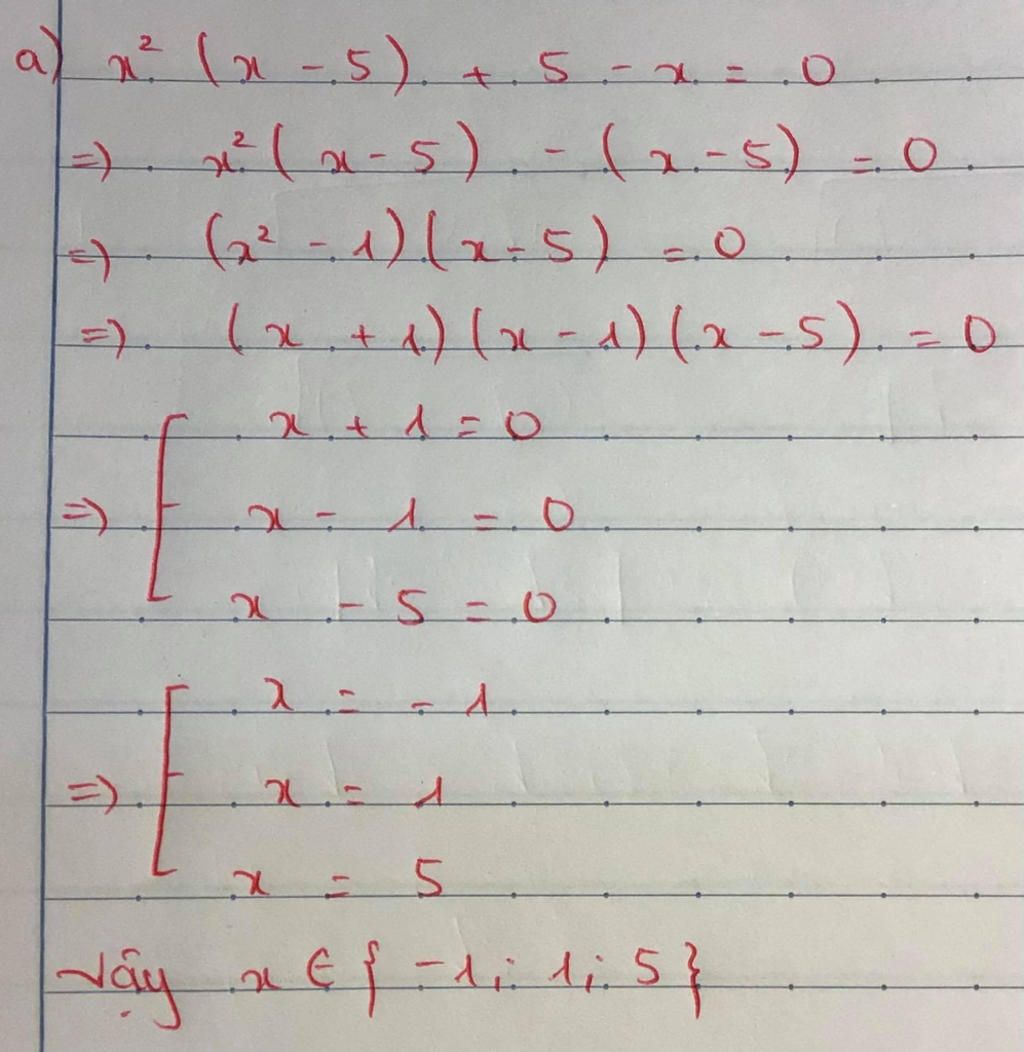 a) x² (x - 5) + 5 - x = 0
=) x² (x - 5) - (x - 5) = 0
=) (x² - 1) (x - 5) = 0
=) (x + 1) (x - 1) (x - 5) = 0
x + 1 = 0
=) [ x - 1 = 0
x - 5 = 0
x = - 1
=) [ x = 1
x = 5
Vậy x ∈ { -1; 1; 5 }